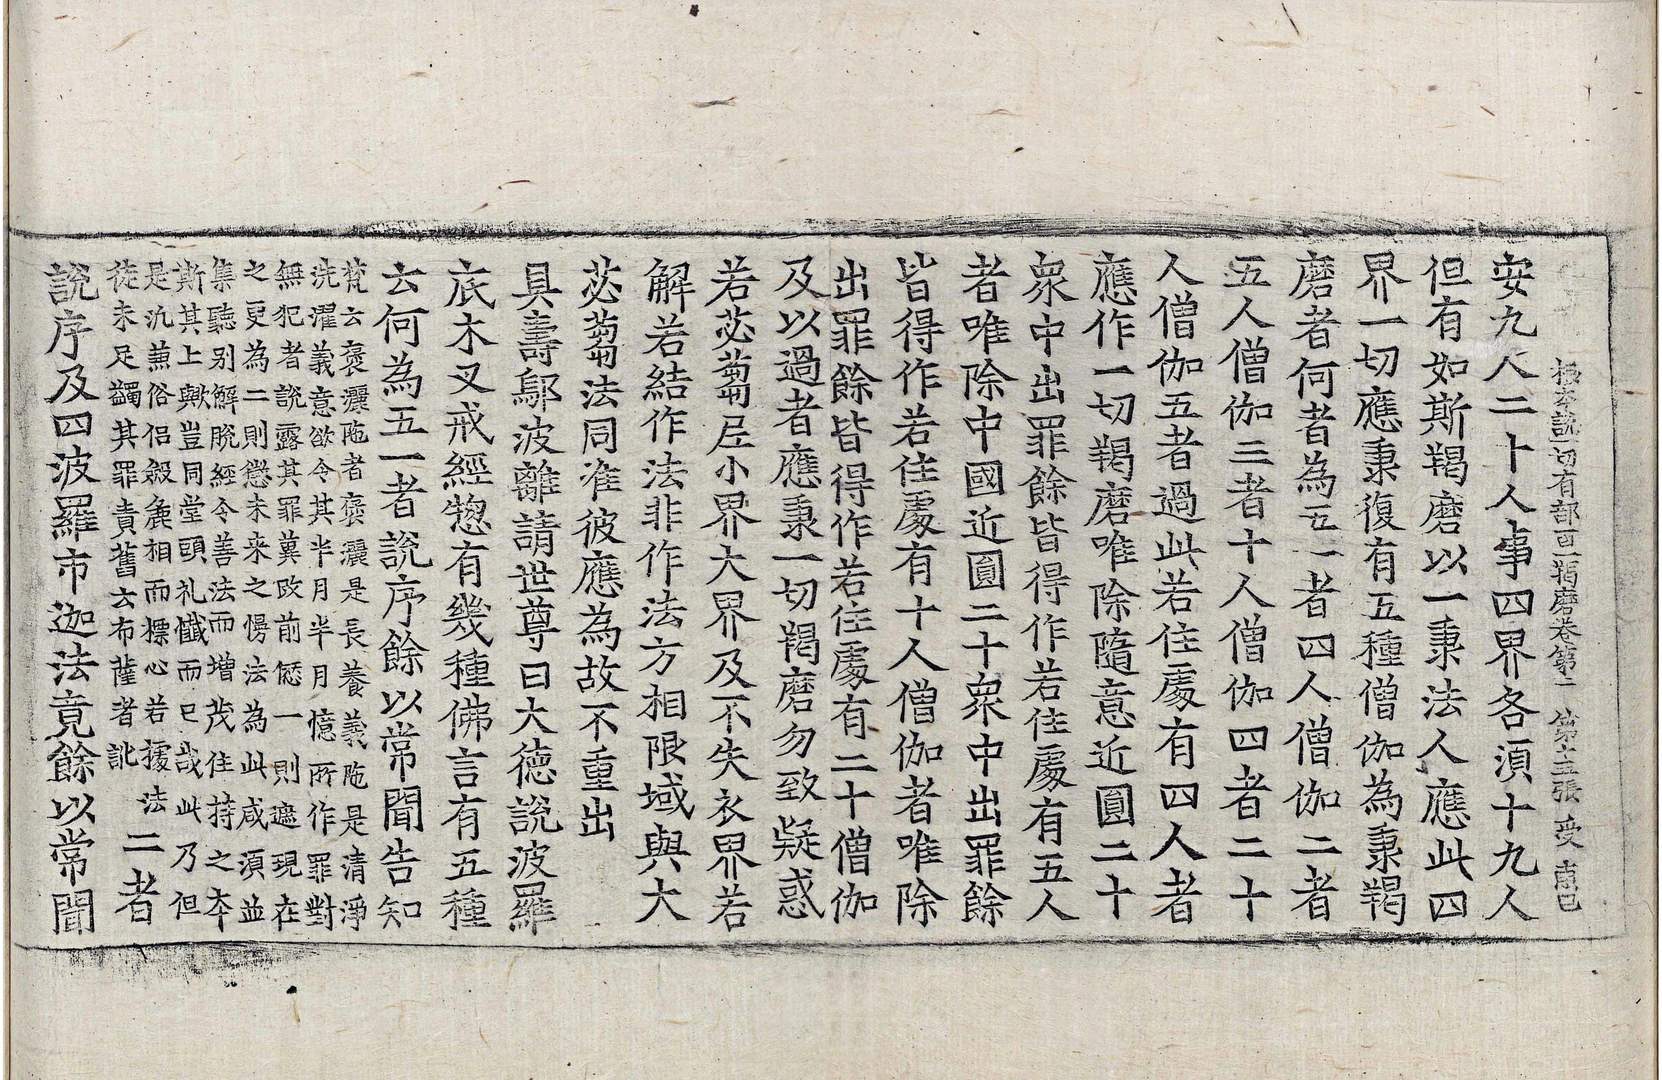 根本說一切有部百一羯磨卷第一 第十五張 受
安九人二十人事四界各湏十九人
但有如斯羯磨以一秉法人應此四
界一切應秉復有五種僧伽為秉羯
磨者何者為五一者四人僧伽二者
五人僧伽三者十人僧伽四者二十
人僧伽五者過此若住處有四人者
應作一切羯磨唯除隨意近圓二十
衆中出罪餘皆得作若住處有五人
者唯除中國近圓二十衆中出罪餘
皆得作若住處有十人僧伽者唯除
出罪餘皆得作若住處有二十僧伽
及以過者應秉一切羯磨勿致疑惑
若苾蒭尼小界大界及不失衣界若
解若結作法非作法方相限域與大
苾蒭法同准彼應為故不重出
具壽鄔波離請世尊曰大德說波羅
底木叉戒經惣有幾種佛言有五種
云何為五一者說序餘以常聞告知
梵云褒灑陁者褒灑是長養義陁是清淨
洗濯義意欲令其半月半月憶所作罪對
無犯者說露其罪冀改前愆一則遮現在
之更為二則懲未来之慢法為此咸湏並
集聽别解脫經令善法而增茂住持之本
斯其上歟豈同堂頭礼懺而已哉此乃但
是汎兼俗侣綴麁相而摽心若據法
徒未足蠲其罪責舊云布薩者訛
二者
說序及四波羅市迦法竟餘以常聞